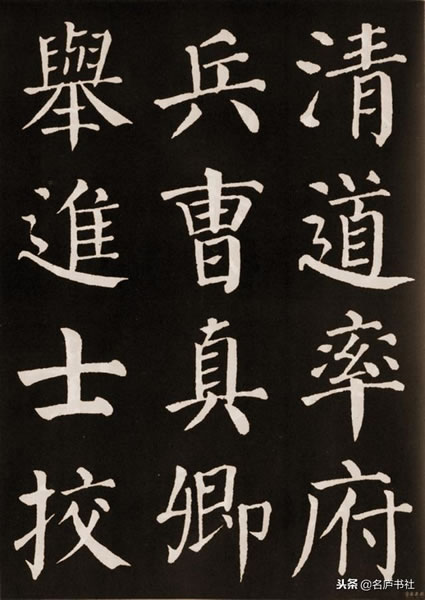 清道率府
兵曹真卿
舉進士挍
头条@名庐书社